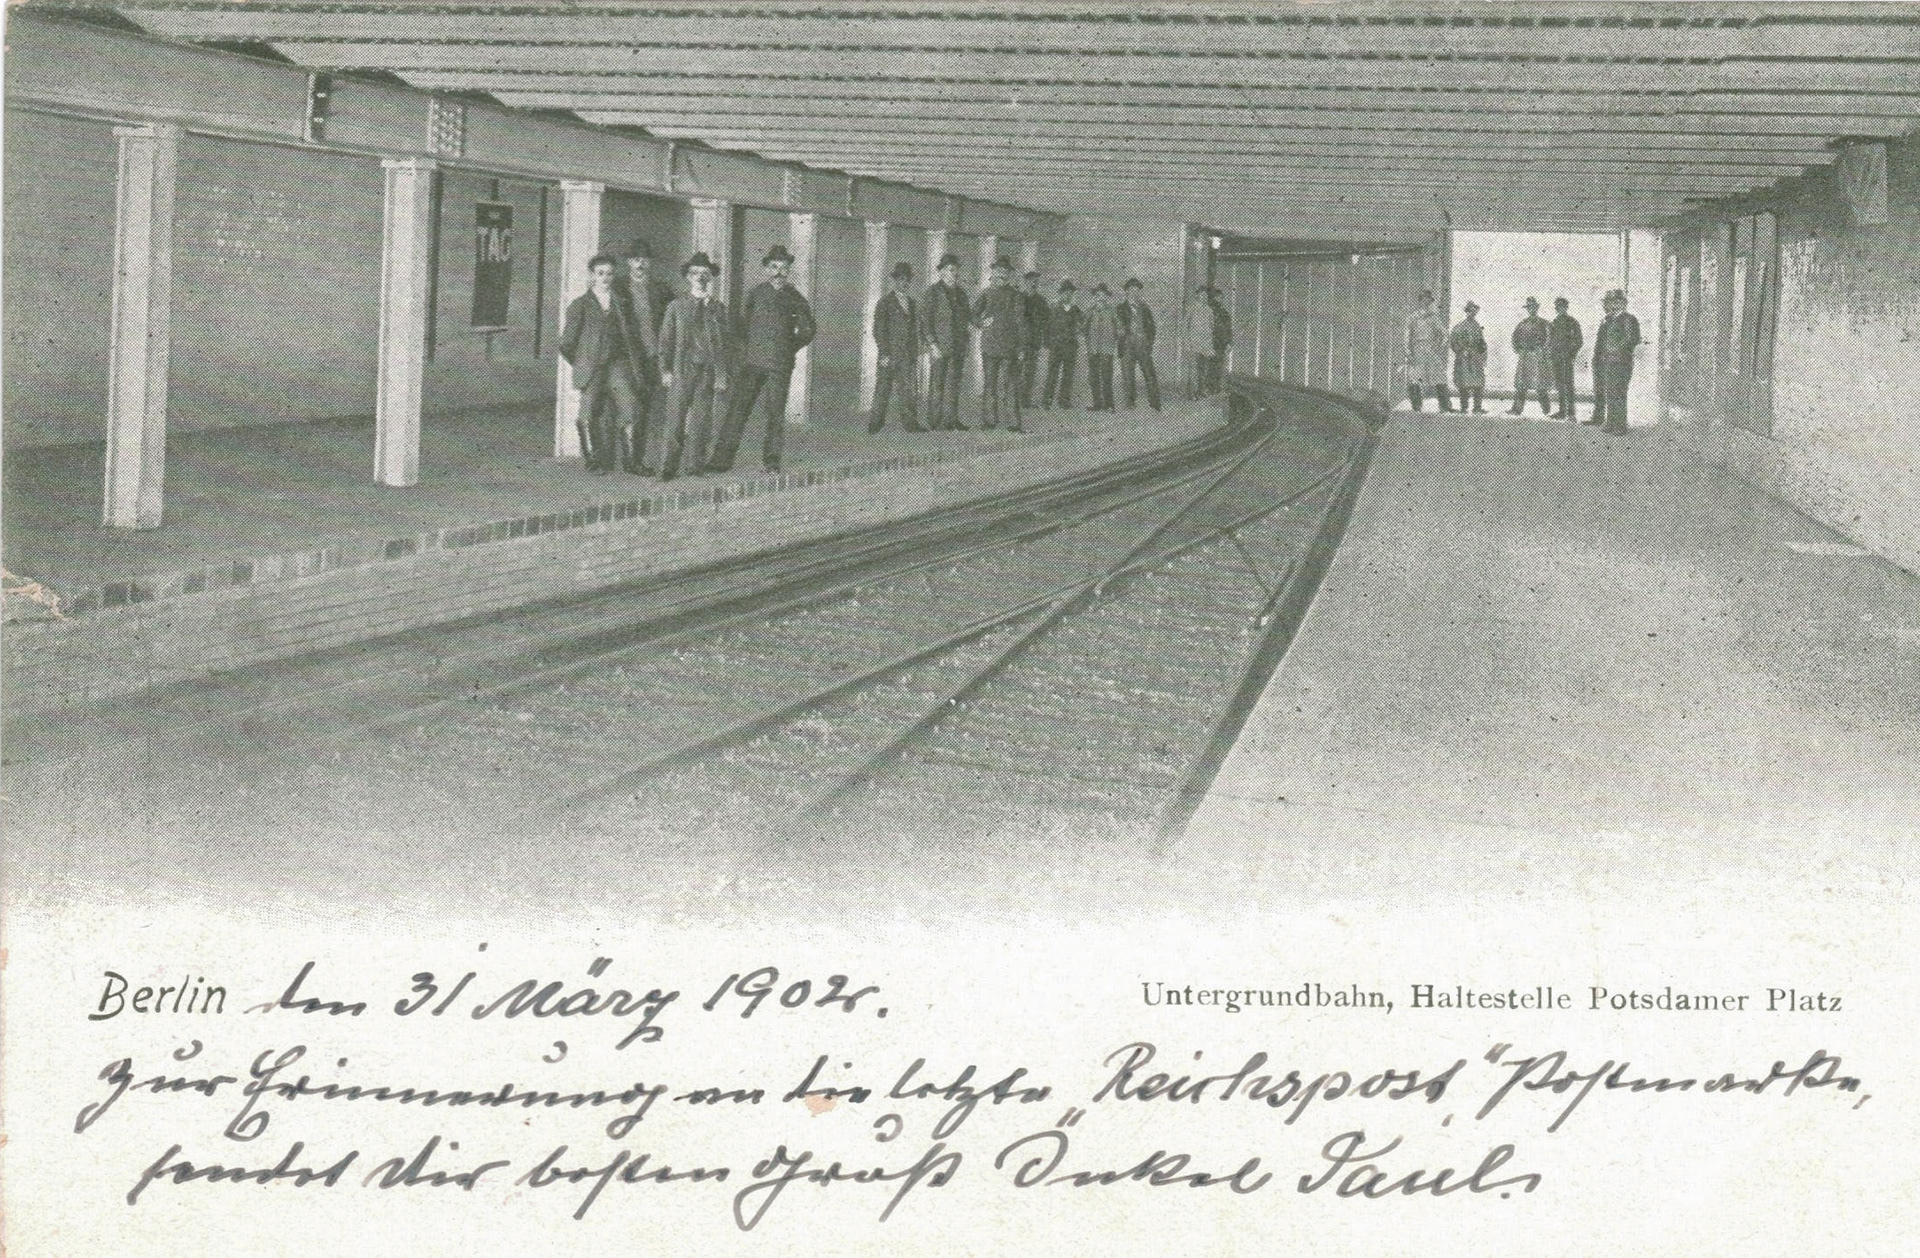 TAG
Berlin den 31 März 1902.
Untergrundbahn, Haltestelle Potsdamer Platz
Zur Erinnerung an die letzte „Reichspost“ Postmarke,
sendet Dir besten Gruß Onkel Paul.